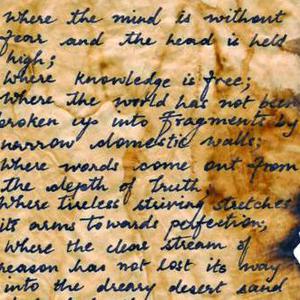 Where the mind is without
fear and the head is held
high;
Where knowledge is free;
Where the world has not been
broken up into fragments by
narrow domestic walls;
Where words come out from
the depth of truth,
Where tireless striving stretches
its arms towards pelfection;
Where the clear stream of
reason has not lost its way
into the dreary desert sand